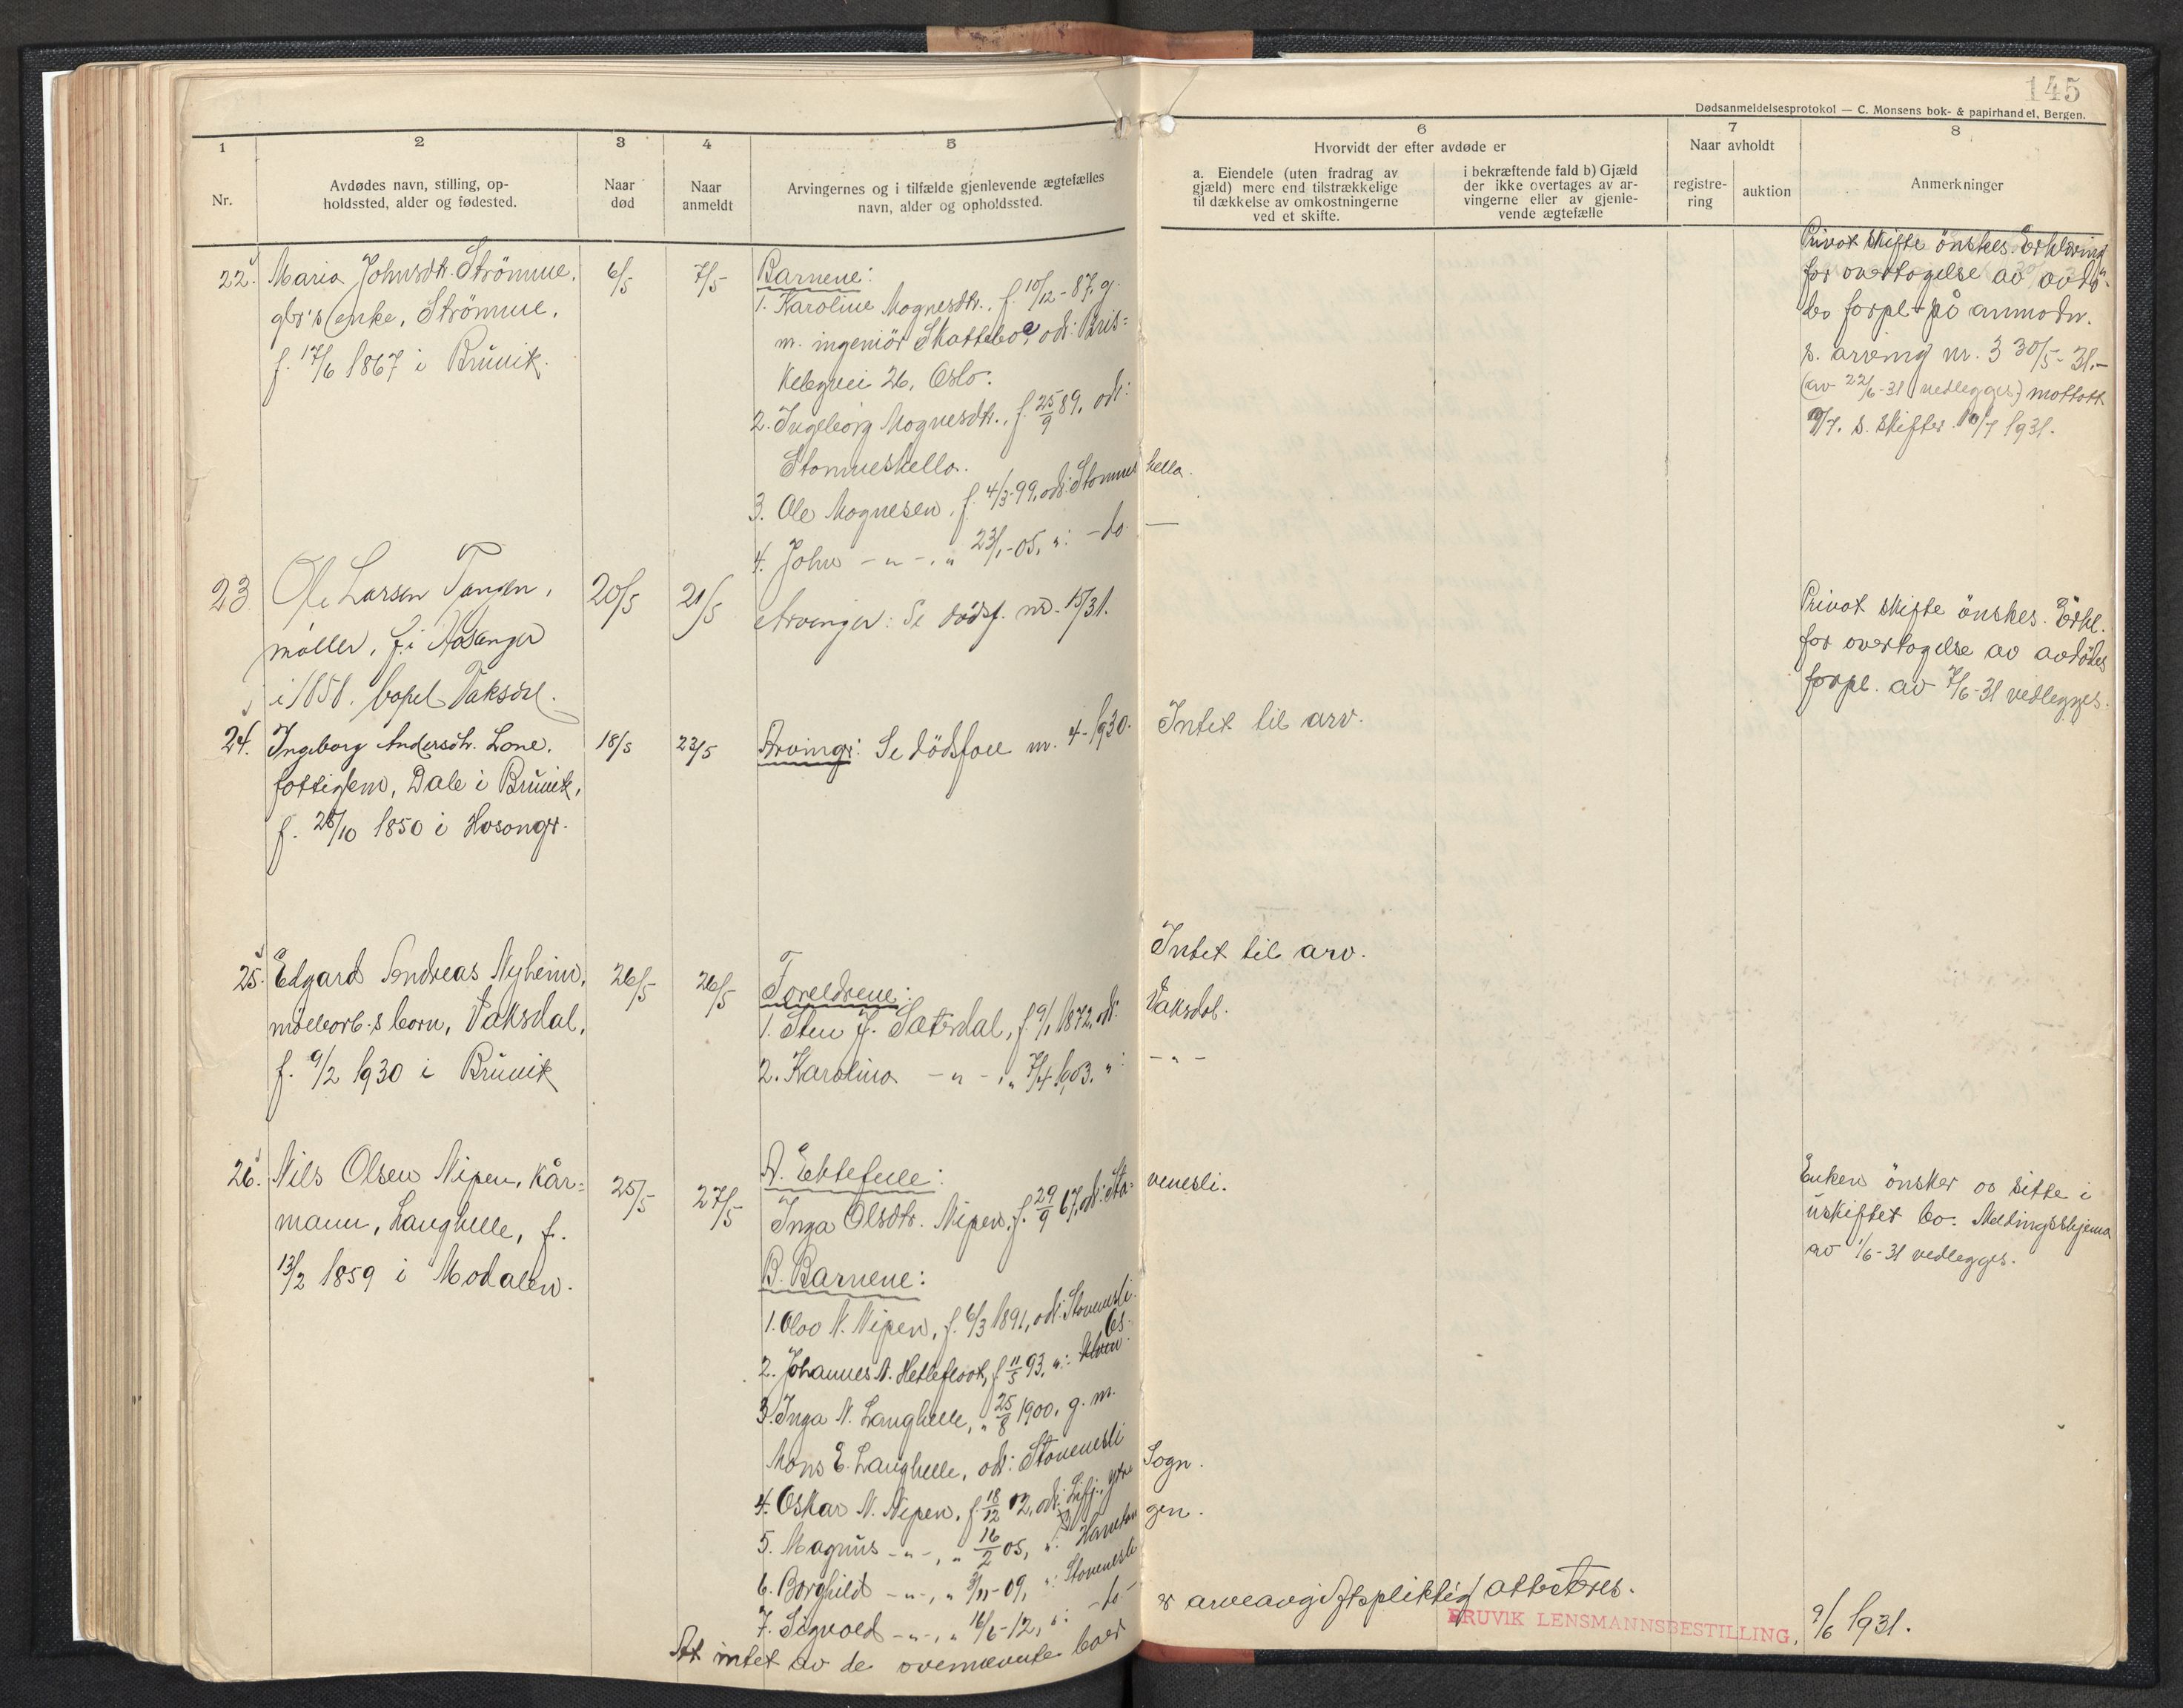 145
Dødsanmeldelsesprotokol — C. Monsens bok- & papirhandel, Bergen.
1
Nr.
2
Avdødes navn, stilling, op-
holdssted, alder og fødested.
3
Naar
død
4
Naar
anmeldt
5
Arvingernes og i tilfælde gjenlevende ægtefælles
navn, alder og opholdssted.
6
Hvorvidt der efter avdøde er
a. Eiendele (uten fradrag av
gjæld) mere end tilstrækkelige
til dækkelse av omkostningerne
ved et skifte.
i bekræftende fald b) Gjæld
der ikke overtages av ar-
vingerne eller av gjenle-
vende ægtefælle
7
Naar avholdt
registre-
ring
auktion
8
Anmerkninger
22. Maria Johnsdtr. Strömme,
gbr's enke, Strömme,
f. 17/6 1867 i Bruvik.
6/5
7/5
Barnene:
1. Karoline Mognesdtr., f. 10/12-87, g.
m. ingeniör Skattebo, ods: Bris-
kebyvei 26, Oslo.
2. Ingeborg Mognesdtr., f. 25/9 89, ods:
Stamneshella.
3. Ole Mognesen, f. 4/3-99, ods: Stamnes hella.
4. John -"-, " 23/1-05, ": -do- —
Privat skifte önskes. Erklæring
for overtagelse av avdö-
des forpl. på anmodn.
s. arving nr. 3 30/5-31.-
(av 22/6-31 vedlegges) mottatt
9/7. s. skifter. 10/7 1931.
23 Ole Larsen Tangen,
møller, f. i Hosanger
i 1858. bopel Vaksdal.
20/5
21/5
Arvinger: Se dödsf. nr. 15/31.
Privat skifte önskes. Erkl.
for overtagelse av avdödes
forpl. av 7/6-31 vedlegges.
24. Ingeborg Andersdtr. Lone,
fattiglem, Dale i Bruvik,
f. 28/10 1850 i Hosangr.
18/5
23/5
Arvingr: Se dödsfall nr. 4-1930.
Intet til arv.
25. Edgard Andreas Nyheim,
möllearb.s barn, Vaksdal,
f. 9/2 1930 i Bruvik
26/5
26/5
Foreldrene:
1. Sten J. Sæterdal, f. 9/1 1872, ods: Vaksdal.
2. Karolina -"-, " 7/4 1903, ": -"-
Intet til arv.
26. Nils Olsen Nipen, kår-
mann, Langhelle, f.
13/2 1859 i Modalen.
25/5
27/5
A. Ektefelle:
Inga Olsdtr. Nipen, f. 29/9 67, ods: Sta- venesli.
B. Barnene:
1. Olav N. Nipen, f. 6/3 1891, ods: Stavenesli.
2. Johannes N. Hetlefloot, f. 11/5 93, ":
3. Inga N. Langhelle, " 25/8 1900, g. m.
Mons E. Langhelle, ods: Stavenesli
4. Oskar N. Nipen, f. 18/12 02, ods: ytre Sogn.
5. Magnus -"-, " 16/2 05, ": gen.
6. Borghild -"-, " 3/11-09, ": Stavenesli
7. Sigvald -"-, " 16/6-12, ": -do-
Enken önsker oo sitte i
uskiftet bo. Meldingsskjema
av 1/6-31 vedlegges.
At intet av de ovennevnte boer er arveavgiftspliktig attesteres.
BRUVIK LENSMANNSBESTILLING, 9/6 1931.